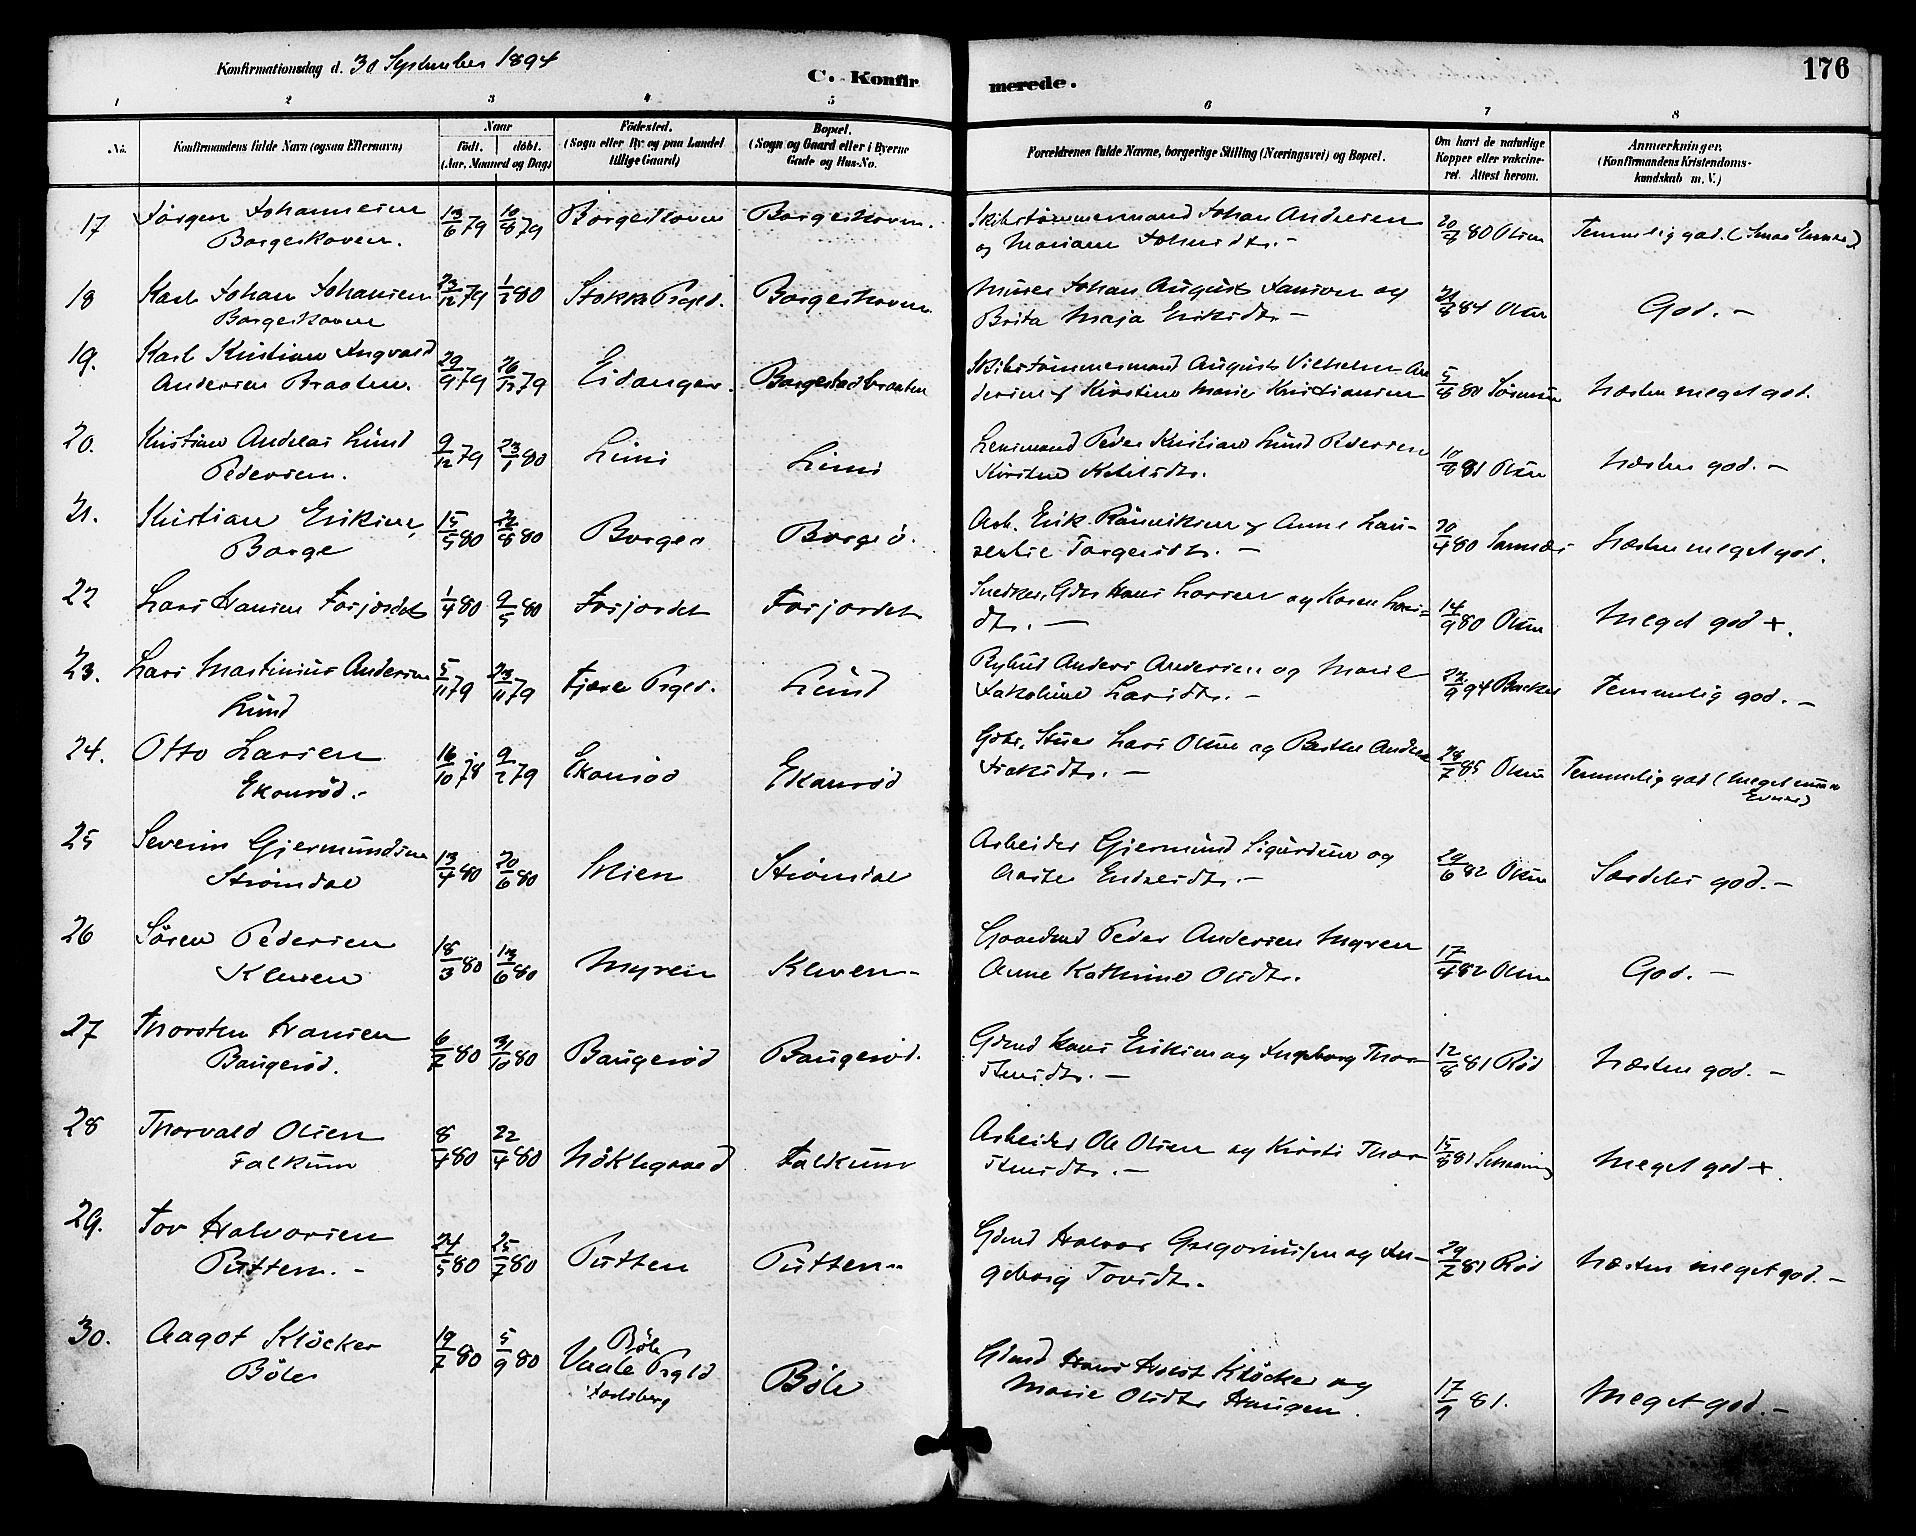 Konfirmationsdag d. 30 September 1894
C. Konfirmerede.
176
1 2 3 4 5 6 7 8
No. Konfirmandens fulde Navn (ogsaa Efternavn) Naar födt. döbt. (Aar, Maaned og Dag) Födested. (Sogn eller By og paa Landet tillige Gaard) Bopæl. (Sogn og Gaard eller i Byerne Gade og Hus-No. Forældrenes fulde Navne, borgerlige Stilling (Næringsvei) og Bopæl. Om havt de naturlige Kopper eller vakcineret. Attest herom. Anmærkninger. (Konfirmandens Kristendomskundskab m. V.)
17 Jörgen Johannesen 13/6 79 10/8 79 Borgeskoven Borgeskoven. Skibstömmermand Johan Andersen 20/7 80 Olsen Temmelig god. (Smaa Evner)
Borgeskoven. og Mariane Johnsdtr. -
18 Karl Johan Johansen 23/12 79 1/2 80 Stokke Prgld. Borgeskoven Murer Johan August Jansen og 21/8 84 Olsen God. -
Borgeskoven Brita Maja Eriksdtr. -
19. Karl Kristian Ingvald 29/9 79 26/12 79 Eidanger. Borgestadbraaten Skibstömmermand August Vilhelm An
Andersen Braaten. dersen og Kirstine Marie Kristiansen 5/8 80 Sörensen Næsten meget god.
20. Kristian Andreas Lund 9/12 79 23/1 80 Limi Limi Lensmand Peder Kristian Lund Pedersen 10/8 81 Olsen Næsten god. -
Pedersen. Kirstine Ketilsdtr.
21. Kristian Eriksen, 15/5 80 22/8 80 Borge Borge. Arb. Erik Rönniksen og Anne Lau- 20/4 80 Næsten meget god.
Borge Torgersdtr. -
22 Lars Hansen Forjordet 1/4 80 9/5 80 Forjordet Forjordet Snedker, Gbr Hans Larsen og Karen Lars- 14/9 80 Olsen Meget god +.
dtr. -
23. Lars Martinius Andersen 5/11 79 23/11 79 Fjære Prgld. Lund Anders Andersen og Marie 22/9 94 Backer Temmelig god. -
Lund Jakobine Larsdtr. -
24. Otto Larsen 16/10 78 9/2 79 Ekornröd Ekornröd Gbr. Lars Olsen og Berthe Andrea 28/7 85 Olsen Temmelig god (meget smaa
Ekornröd. - Isaksdtr. - Evner)
25 Severin Gjermundsen 13/4 80 20/6 80 Skien Strömdal Arbeider Gjermund Sigurdsen og 29/6 82 Olsen Særdeles god. -
Strömdal Aaste Endresdtr. -
26 Sören Pedersen 18/3 80 13/6 80 Myren Kleven - Gaardmd Peder Andersen Myren 17/4 82 Olsen God. -
Kleven Anne Kathrine Olsdtr.
27 Thorsten Hansen 6/2 80 31/10 80 Baugeröd Baugeröd. Gdmd Hans Eriksen og Ingeborg Thor- 12/8 81 Röd Næsten god. -
Baugeröd. stensdtr. -
28 Thorvald Olsen 8/4 80 22/4 80 Nöklegaard Falkum Arbeider Ole Olsen og Kirsti Thor 15/8 81 Meget god +.
Falkum stensdtr. -
29. Tov Halvorsen 24/5 80 25/7 80 Putten Putten Gdmd Halvor Gregoriussen og In- 29/7 81 Röd Næsten meget god. -
Putten. - geborg Tovsdtr.
30. Aagot Klöcker 19/7 80 5/9 80 Böle Böle Gdmd Hans Holst Klöcker og 17/9 81. Meget god. -
Böle Vaale Prgld Marie Olsdtr Haugen.
Jarlsberg